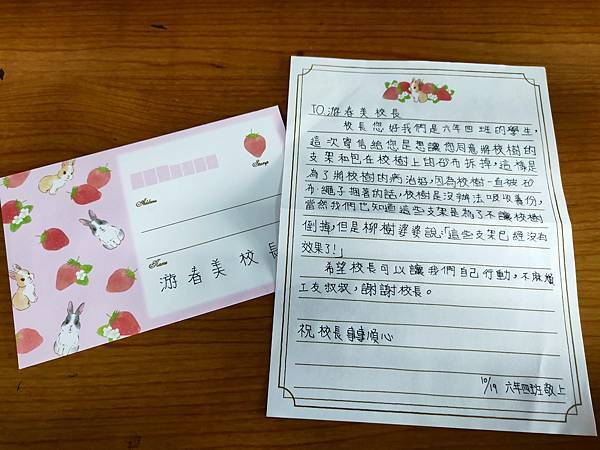 Stamp
Address
Name
游春美校長
TO.游春美校長
校長您好我們是六年四班的學生,
這次寄信給您是想讓您同意將校樹的
支架和包在校樹上的砂布拆掉,這樣是
為了將校樹的病治好,因為校樹一直被砂
布、繩子捆著的話,校樹是沒辦法吸收養份,
當然我們也知道這些支架是為了不讓校樹
倒掉,但是柳樹婆婆說:「這些支架已經沒有
效果了!」
希望校長可以讓我們自己行動,不麻煩
工友叔叔,謝謝校長。
祝校長事事順心
10/19 六年四班敬上